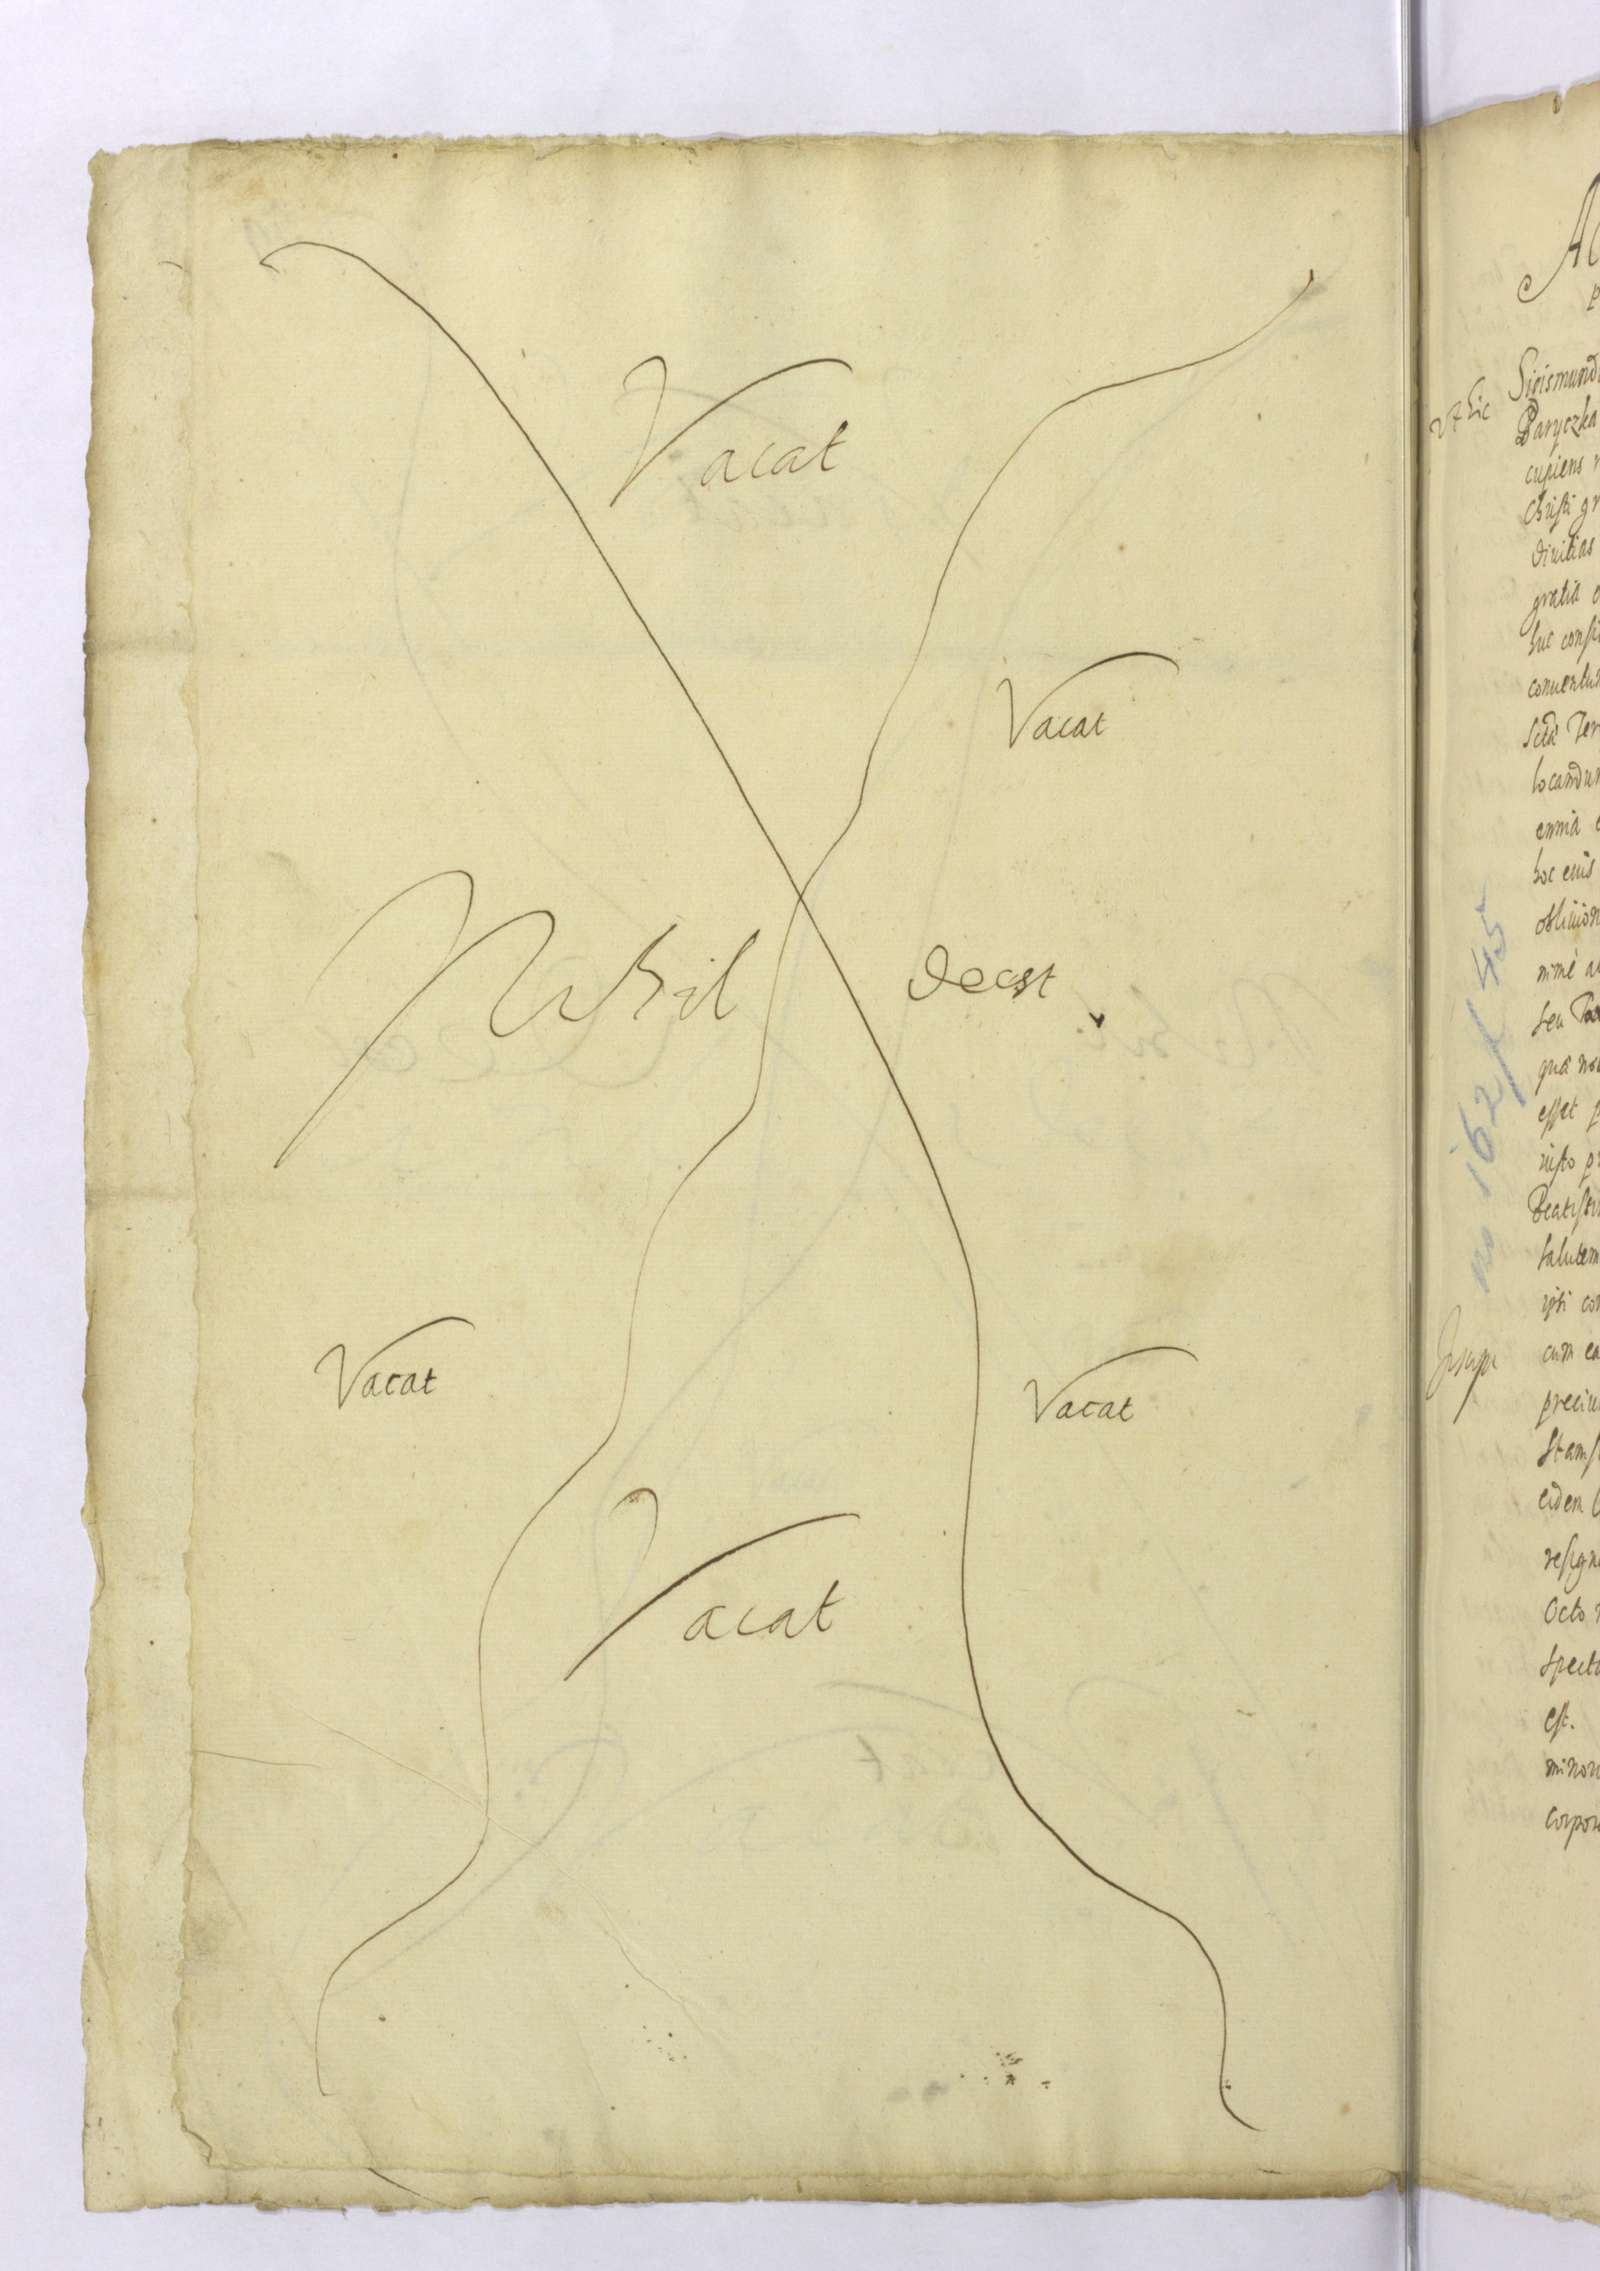 Vacat
Vacat
Nihil deest
Vacat
Vacat
Vacat
Ut hic
Sigismund
Baryczka
cupiens
Christi gr
divitias
gratia
huc consi
conventu
locandu
hoc eius
oblivion
seu
qua no
esset p
iusto pr
Beatissi
salutem
ipsi con
cum ea
preciu
Stamß
eidem
resign
Octo
spect
est.
minor
corpor
no 162 f 45